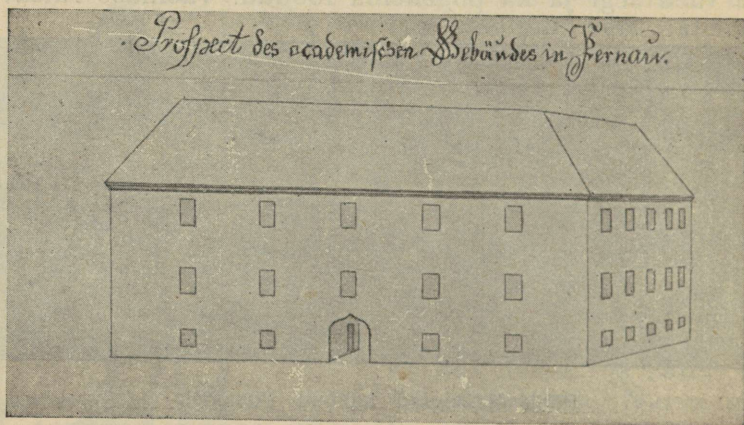 Prospect des academischen Gebäudes in Pernau.